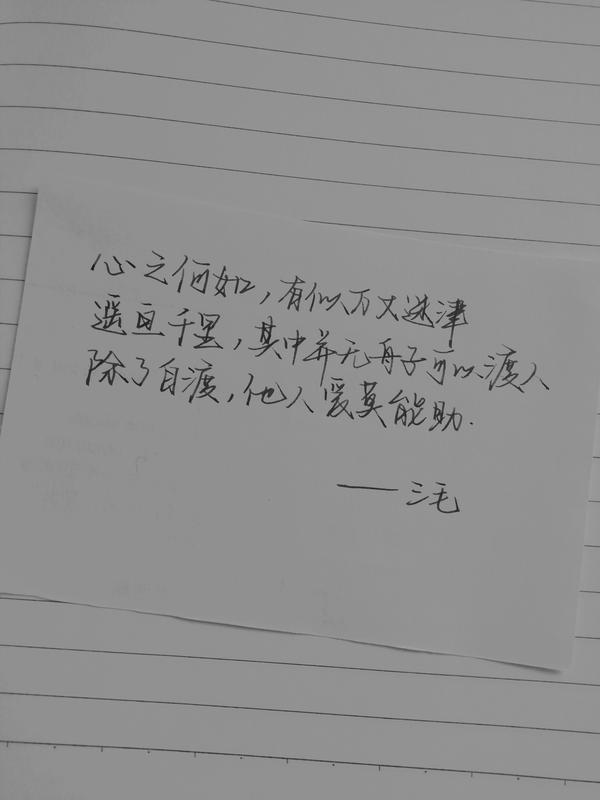 心之何如，有似万丈迷津
遥亘千里，其中并无舟子可以渡人
除了自渡，他人爱莫能助.
——三毛